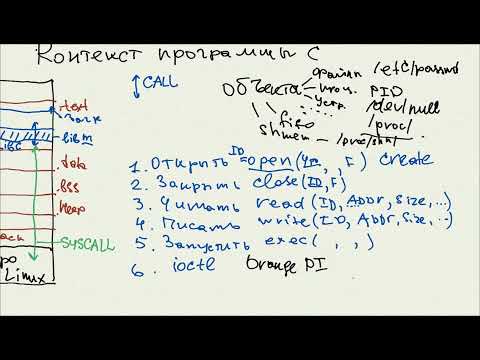 Контекст программы С
CALL
объекта
файлы /etc/passwd
проц. PID
устр. /dev/null
/proc/
fifo
shmem /proc/shm/
.text
libm
.data
.BSS
Heap
SYSCALL
Linux
1. Открыть ID=open( , , F) create
2. Закрыть close(ID,F)
3. Читать read(ID, Addr, Size, ..)
4. Писать write(ID, Addr, Size, ..)
5. Запустить exec( , , )
6. ioctl Orange PI